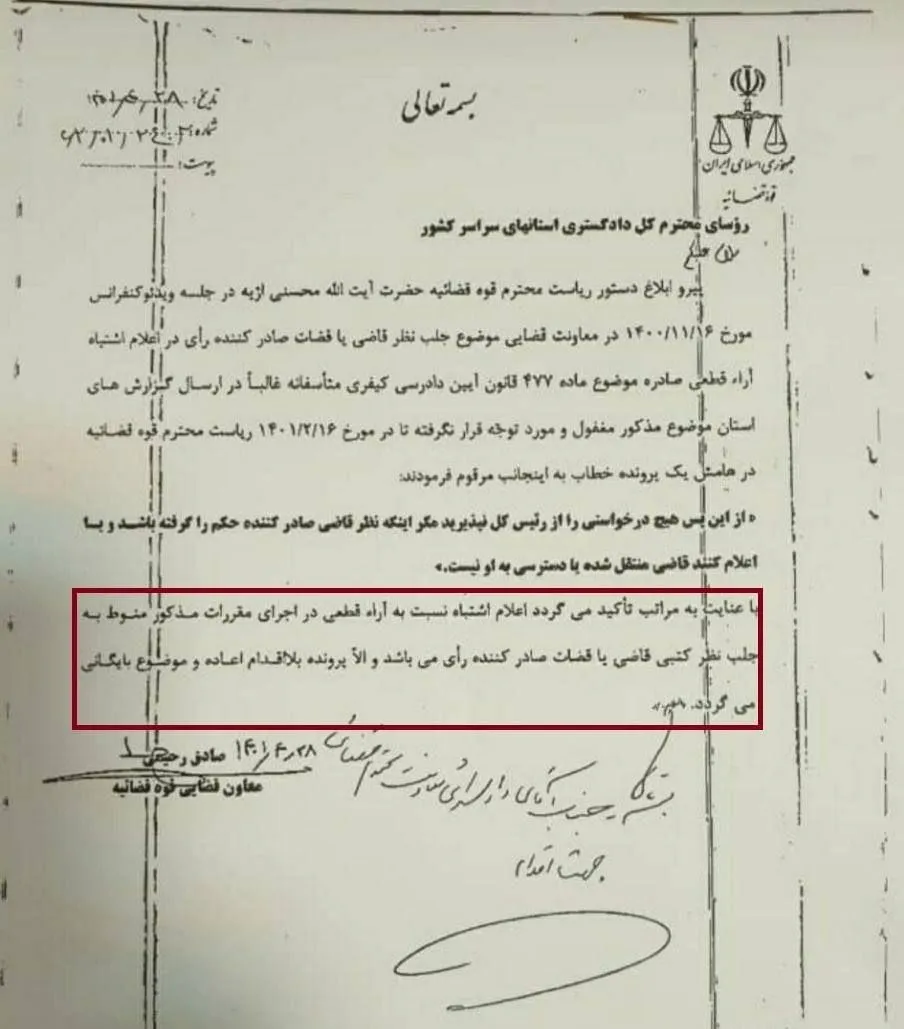 بسمه تعالی
جمهوری اسلامی ایران
قوه قضائیه
تاریخ:
شماره:
پیوست:
رؤسای محترم کل دادگستری استانهای سراسر کشور
سلام علیکم
پیرو ابلاغ دستور ریاست محترم قوه قضائیه حضرت آیت الله محسنی اژیه در جلسه ویدئوکنفرانس
مورخ ۱۴۰۰/۱۱/۱۶ در معاونت قضایی موضوع جلب نظر قاضی یا قضات صادر کننده رأی در اعلام اشتباه
آراء قطعی صادره موضوع ماده ۴۷۷ قانون آیین دادرسی کیفری متأسفانه غالباً در ارسال گزارش های
استان موضوع مذکور مغفول و مورد توجّه قرار نگرفته تا در مورخ ۱۴۰۱/۲/۱۶ ریاست محترم قوه قضائیه
در هامش یک پرونده خطاب به اینجانب مرقوم فرمودند:
« از این پس هیچ درخواستی را از رئیس کل نپذیرید مگر اینکه نظر قاضی صادر کننده حکم را گرفته باشد و یا
اعلام کنند قاضی منتقل شده یا دسترسی به او نیست.»
با عنایت به مراتب تأکید می گردد اعلام اشتباه نسبت به آراء قطعی در اجرای مقررات مذکور منوط به
جلب نظر کتبی قاضی یا قضات صادر کننده رأی می باشد و الاّ پرونده بلااقدام اعاده و موضوع بایگانی
می گردد.
صادق رحیمی
۱۴۰۱/۴/۲۸
معاون قضایی قوه قضائیه
جناب آقای
جهت اقدام